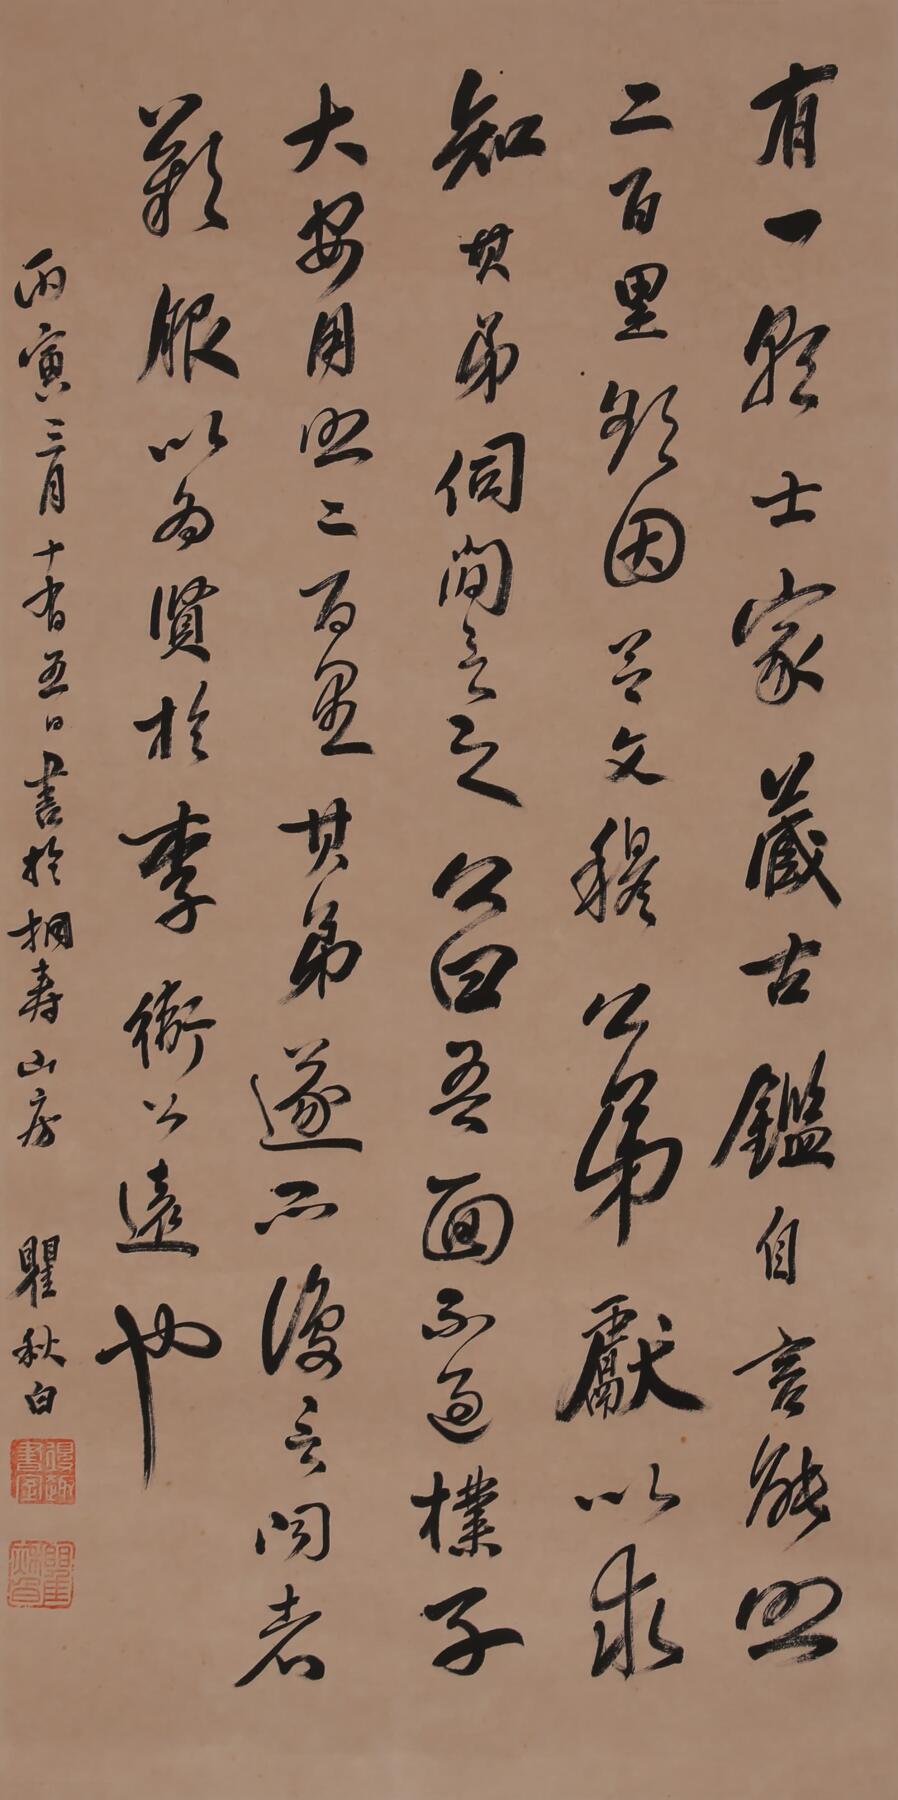 有一朝士家藏古鑑自言能照
二百里欲因呂文穆公弟獻以求
知其弟伺間言之公曰吾面不過楪子
大安用照二百里其弟遂不復言聞者
歎服以為賢於李衛公遠也
丙寅三月十有五日書於桐寿山房 瞿秋白
瞿秋白